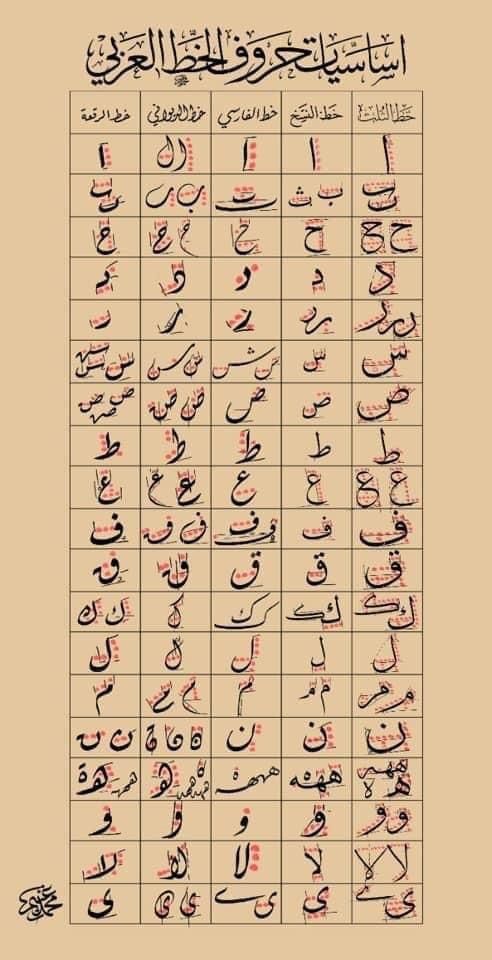 اساسيّات حروف الخطّ العربي
خط الثلث خط النسخ خط الفارسي خط الديواني خط الرقعة
ا ا ا ال ا
ب ث ت ب ب
ح ح ح ح ح ح ح
د د د د د
ر ر ر ر ر ر ر
س س س ش س س س س
ص ض ض ض ض ض ض
ط ط ط ط ط
ع ع ع ع ع ع ع
ف ف ف ف ف ف ف
ق ق ق ق ق
ك ك ك ك ك ك ك ك ك
ل ل ل ل ل
م م م م م م م م
ن ن ن ن ن ن ن ن
ههه ه ه ههه ههه ه ههه ههه ه
و و و و و و
لا لا لا لا لا لا
ي ي ي ي ي ي ي ي